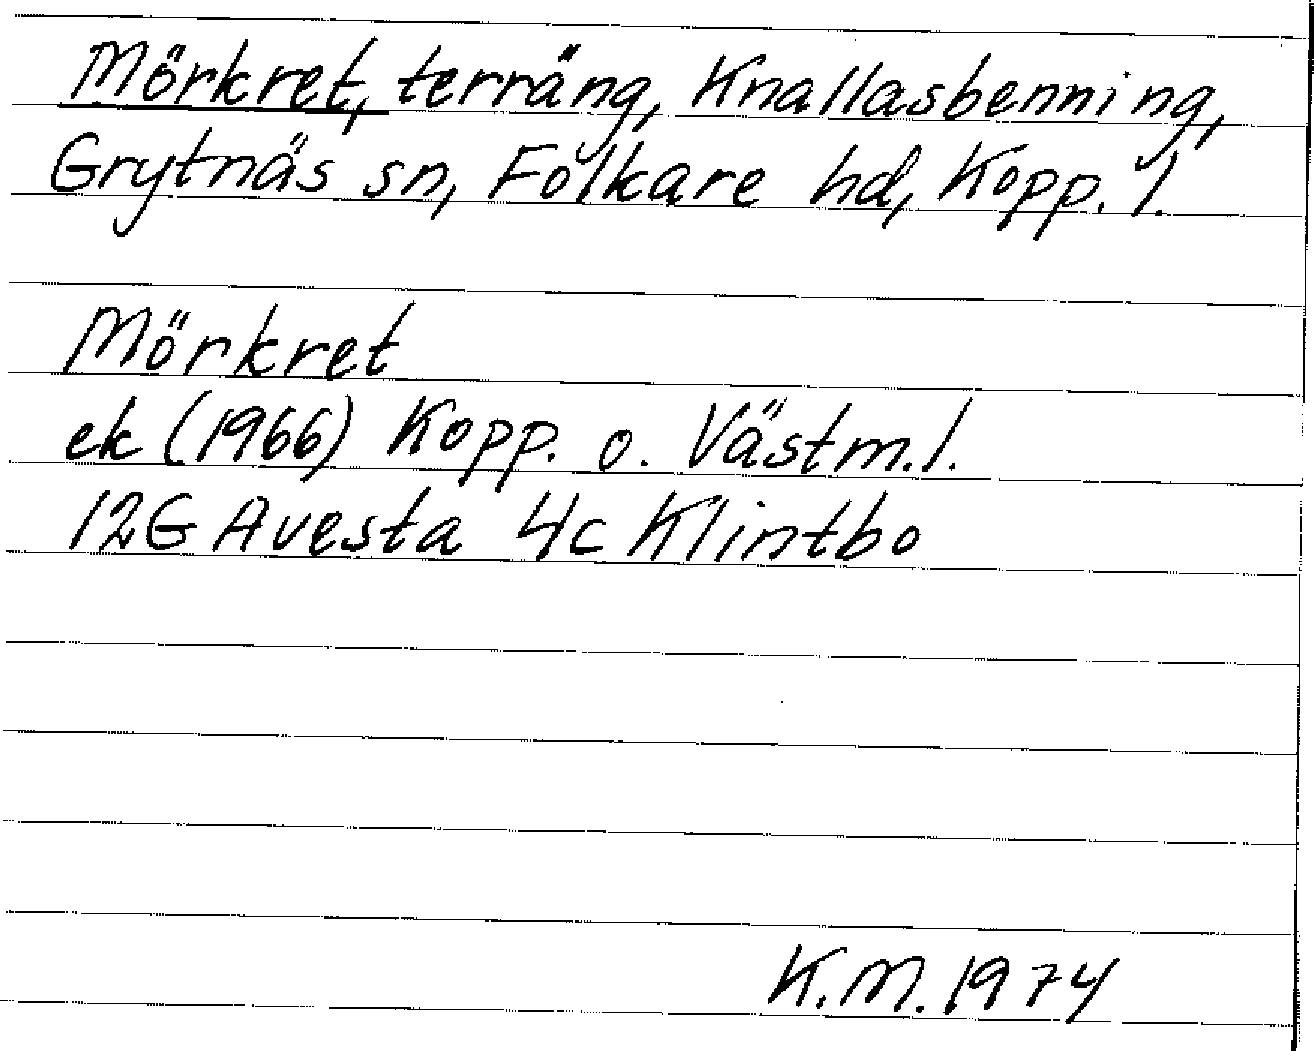 Mörkret, terräng, Knallasbenning,
Grytnäs sn, Folkare hd, Kopp. l.
Mörkret
ek (1966) Kopp. o. Västm.l.
12G Avesta 4c Klintbo
K.M. 1974